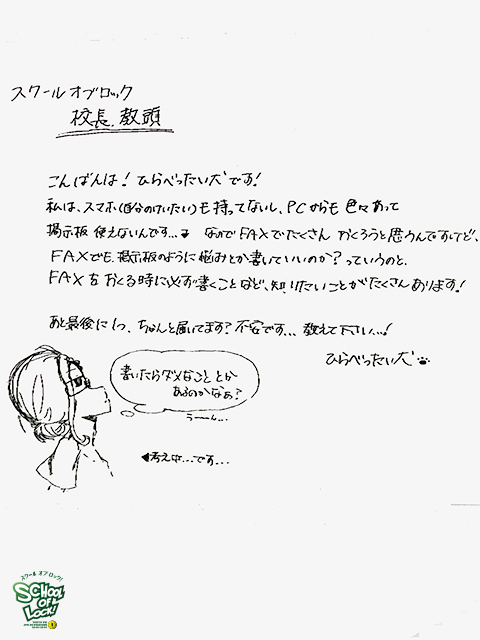 スクールオブロック
校長、教頭
こんばんは!ひらべったい犬です!
私は、スマホ(自分のけいたい)も持ってないし、PCからも色々あって
掲示板使えないんです…なのでFAXでたくさんおくろうと思うんですけど、
FAXでも、掲示板のように悩みとか書いていいのか?っていうのと、
FAXをおくる時に必ず書くことなど、知りたいことがたくさんあります!
あと最後に1つ、ちゃんと届いてます?不安です…教えて下さい…!
ひらべったい犬
書いたらダメなこととか
あるのかなぁ?
うーん…
◀考え中…です…
スクール オブ ロック!
SCHOOL
OF
LOCK!